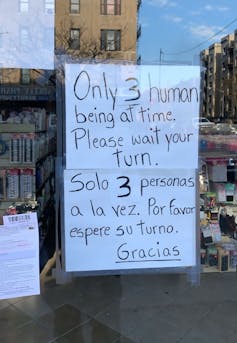 Only 3 human
being at time.
Please wait your
turn.
Solo 3 personas
a la vez. Por Favor
espere su turno.
Gracias